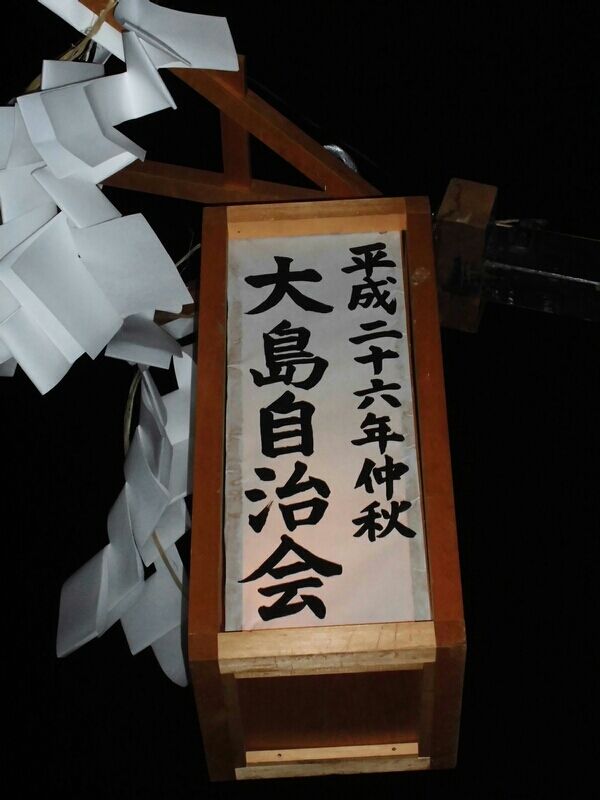 平成二十六年仲秋
大島自治会